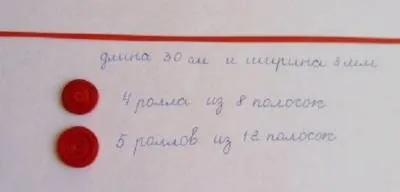 длина 30 см и ширина 3 мм
4 ролла из 8 полосок
5 роллов из 12 полосок